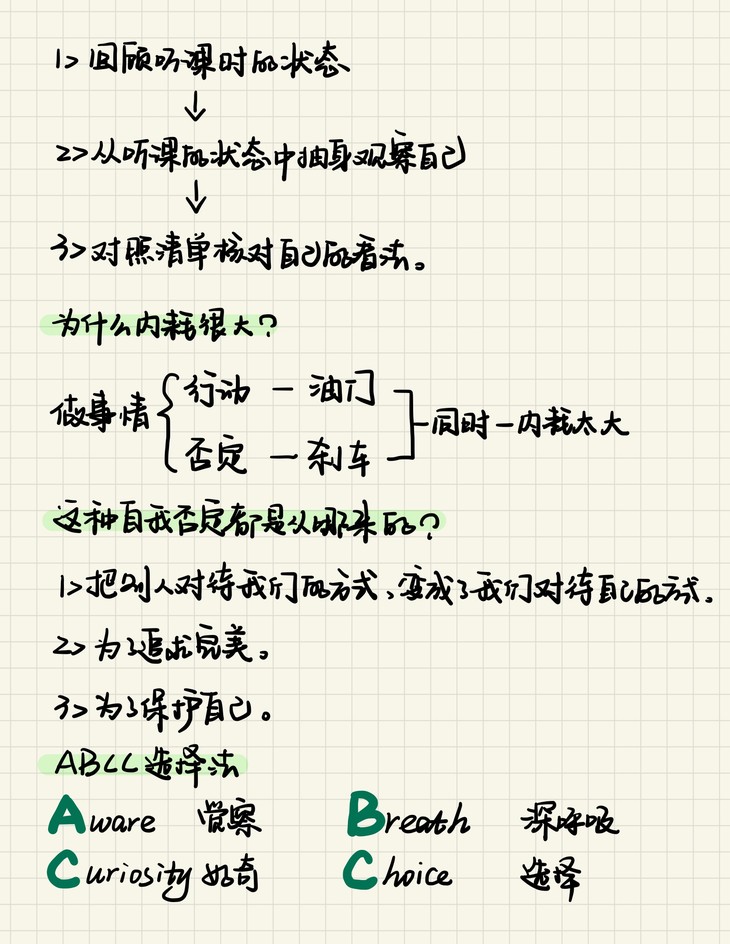 1> 回顾听课时的状态
↓
2> 从听课的状态中抽身观察自己
↓
3> 对照清单核对自己的看法。
为什么内耗很大?
做事情 { 行动 — 油门
否定 — 刹车 ] — 同时 — 内耗太大
这种自我否定都是从哪来的?
1> 把别人对待我们的方式、变成了我们对待自己的方式.
2> 为了追求完美。
3> 为了保护自己。
ABCC 选择法
Aware 觉察 Breath 深呼吸
Curiosity 好奇 Choice 选择